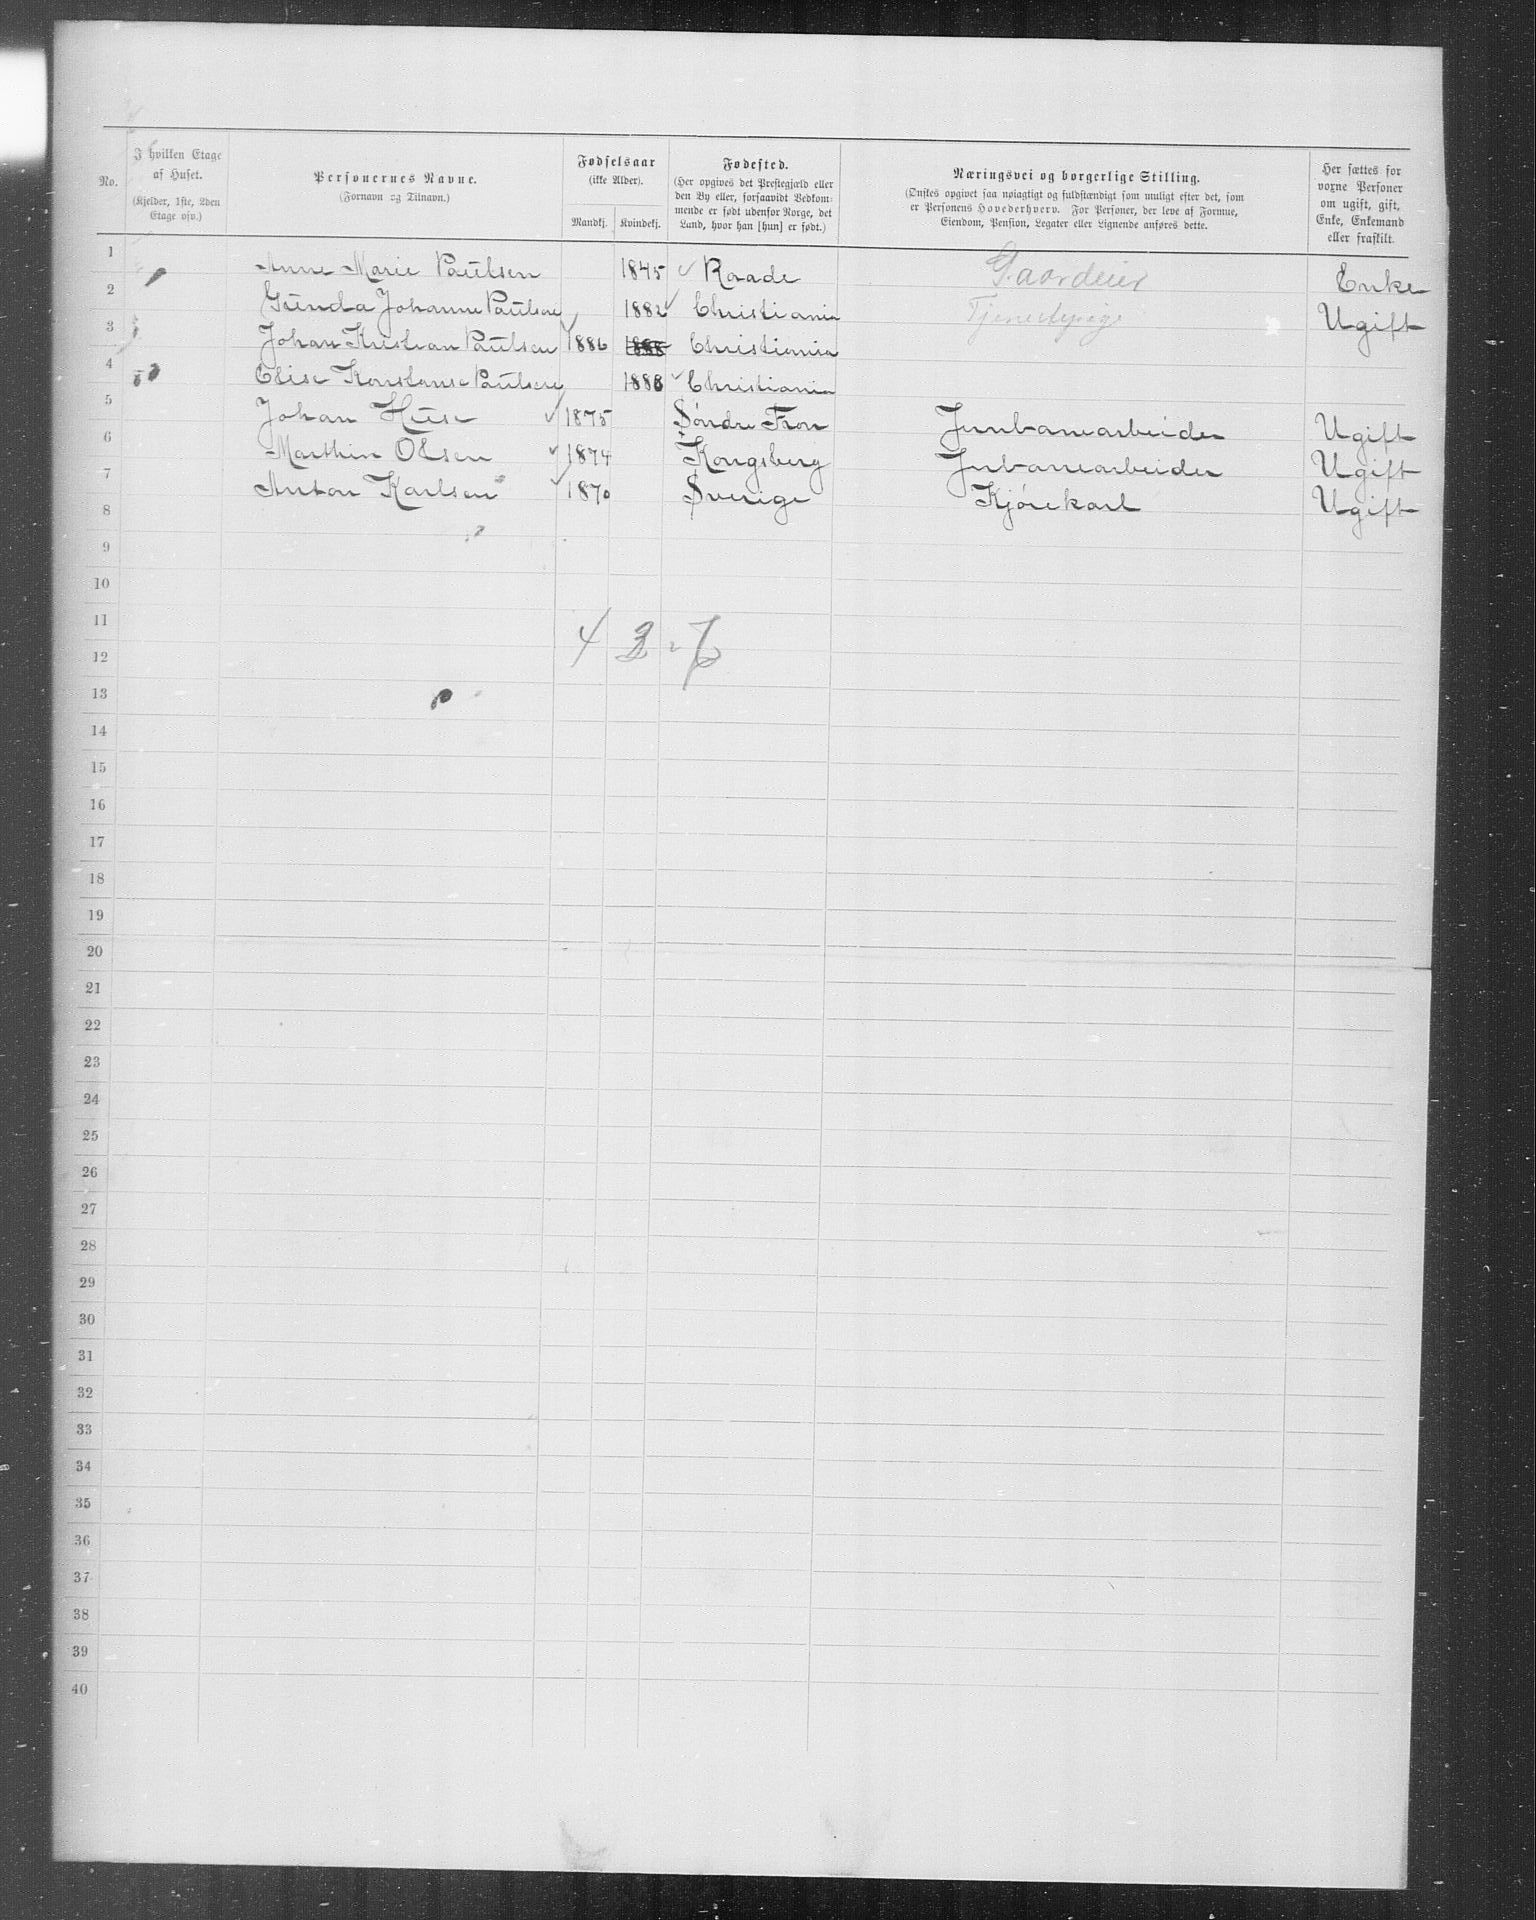 No.
I hvilken Etage af Huset.
(Kjelder, 1ste, 2den Etage osv.)
Personernes Navne.
(Fornavn og Tilnavn.)
Fødselsaar
(ikke Alder).
Mandkj. Kvindekj.
Fødested.
(Her opgives det Prestegjæld eller
den By eller, forsaavidt Vedkom-
mende er født udenfor Norge, det
Land, hvor han [hun] er født.)
Næringsvei og borgerlige Stilling.
(Ønskes opgivet saa nøiagtigt og fuldstændigt som muligt efter det, som
er Personens Hovederhverv. For Personer, der leve af Formue,
Eiendom, Pension, Legater eller Lignende anføres dette.
Her sættes for
voxne Personer
om ugift, gift,
Enke, Enkemand
eller fraskilt.
1 Anne Marie Paulsen 1845 Raade Gaardeier Enke
2 Gunda Johanne Paulsen 1882 Christiania Tjenestepige Ugift
3 Johan Kristian Paulsen 1886 1888 Christiania
4 Elise Konstanse Paulsen 1888 Christiania
5 Johan Huse 1875 Søndre Fron Jernbanearbeider Ugift
6 Marthin Olsen 1874 Kongsberg Jenbanearbeider Ugift
7 Anton Karlsen 1870 Sverige Kjørekarl Ugift
8
9
10
11
4 3 - 7
12
13
14
15
16
17
18
19
20
21
22
23
24
25
26
27
28
29
30
31
32
33
34
35
36
37
38
39
40